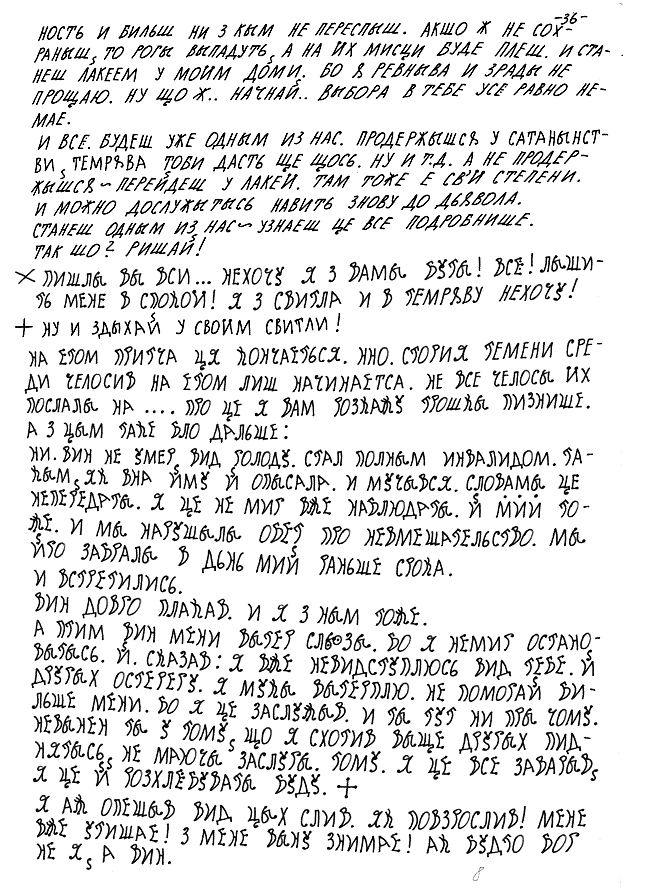 -36-
НОСТЬ И БИЛЬШ НИ З КЫМ НЕ ПЕРЕСПЫШ. АКШО Ж НЕ СОХ-
РАНЫШ, ТО РОГЫ ВЫПАДУТЬ, А НА ИХ МИСЦИ БУДЕ ПЛЕШ. И СТА-
НЕШ ЛАКЕЕМ У МОИМ ДОМИ. БО Я РЕВНЫВА И ЗРАДЫ НЕ
ПРОЩАЮ. НУ ЩО Ж.. НАЧНАЙ.. ВЫБОРА В ТЕБЕ УСЕ РАВНО НЕ-
МАЕ.
И ВСЕ. БУДЕШ УЖЕ ОДНЫМ ИЗ НАС. ПРОДЕРЖЫШСЯ У САТАНЫНСТ-
ВИ, ТЕМРЯВА ТОБИ ДАСТЬ ЩЕ ЩОСЬ. НУ И Т.Д. А НЕ ПРОДЕР-
ЖЫШСЯ ~ ПЕРЕЙДЕШ У ЛАКЕЙ. ТАМ ТОЖЕ Е СВИ СТЕПЕНИ.
И МОЖНО ДОСЛУЖЫТЫСЬ НАВИТЬ ЗНОВУ ДО ДЬЯВОЛА.
СТАНЕШ ОДНЫМ ИЗ НАС ~ УЗНАЕШ ЦЕ ВСЕ ПОДРОБНИШЕ.
ТАК ШО? РИШАЙ!
× ПИШЛЫ ВЫ ВСИ... НЕХОЧУ Я З ВАМЫ БУТЫ! ВСЕ! ЛЫШИ-
ТЬ МЕНЕ В СПОКОЙ! Я З СВИТЛА И В ТЕМРЯВУ НЕХОЧУ!
+ НУ И ЗДЫХАЙ У СВОИМ СВИТЛИ!
НА ЕТОМ ПРИТЧА ЦЯ КОНЧАЕТЬСЯ. ННО. СТОРИЯ ТЕМЕНИ СРЕ-
ДИ ЧЕЛОСИВ НА ЕТОМ ЛИШ НАЧИНАЕТСА. НЕ ВСЕ ЧЕЛОСЫ ИХ
ПОСЛАЛЫ НА .... ПРО ЦЕ Я ВАМ РОЗКАЖУ ТРОШКЫ ПИЗНИШЕ.
А З ЦЫМ ТАКЕ БЛО ДАЛЬШЕ:
НИ. ВИН НЕ УМЕР, ВИД ГОЛОДУ. СТАЛ ПОЛНЫМ ИНВАЛИДОМ. ТА-
КЫМ, ЯК ВНА ЙМУ Й ОПЫСАЛА. И МУЧЫВСЯ. СЛОВАМЫ ЦЕ
НЕПЕРЕДАТЫ. Я ЦЕ НЕ МИГ ВЖЕ НАБЛЮДАТЫ. Й МИЙ ТО-
ЖЕ. И МЫ НАРУШЫЛЫ ОБЕТ ПРО НЕВМЕШАТЕЛЬСТВО. МЫ
ЙГО ЗАБРАЛЫ В ДЬНЬ МИЙ РАНЬШЕ СРОКА.
И ВСТРЕТИЛИСЬ.
ВИН ДОВГО ПЛАКАВ. И Я З НЫМ ТОЖЕ.
А ПТИМ ВИН МЕНИ ВЫТЕР СЛЬОЗЫ. БО Я НЕМИГ ОСТАНО-
ВЫТЫСЬ. Й. СКАЗАВ: Я ВЖЕ НЕВИДСТУПЛЮСЬ ВИД ТЕБЕ. Й
ДРУГЫХ ОСТЕРЕГУ. Я МУКЫ ВЫТЕРПЛЮ. НЕ ПОМОГАЙ БИ-
ЛЬШЕ МЕНИ. БО Я ЦЕ ЗАСЛУЖЫВ. И ТЫ ТУТ НИ ПРЫ ЧОМУ.
НЕВЫНЕН ТЫ У ТОМУ, ЩО Я СХОТИВ ВЫЩЕ ДРУГЫХ ПИД-
НЯТЫСЬ, НЕ МАЮЧЫ ЗАСЛУГЫ. ТОМУ. Я ЦЕ ВСЕ ЗАВАРЫВ,
Я ЦЕ Й РОЗХЛЕБУВАТЫ БУДУ. +
Я АЖ ОПЕШЫВ ВИД ЦЫХ СЛИВ. ЯК ПОВЗРОСЛИВ! МЕНЕ
ВЖЕ УТИШАЕ! З МЕНЕ ВЫНУ ЗНИМАЕ! АЖ БУДТО БОГ
НЕ Я, А ВИН.
8